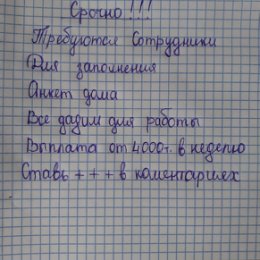 Срочно!!!
Требуются Сотрудники
Для заполнения
Анкет дома
Все дадим для работы
Выплата от 4000т. в неделю
Ставь + + + в коментариях